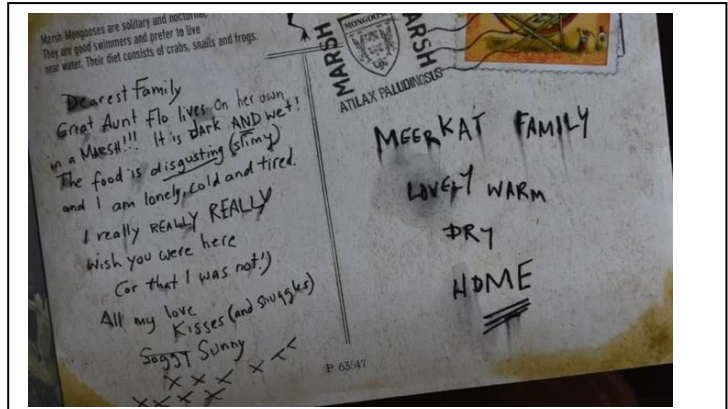 Marsh Mongooses are solitary and nocturnal
They are good swimmers and prefer to live
near water. Their diet consists of crabs, snails and frogs.
Dearest Family
Great Aunt Flo lives on her own
in a MARSH!!! It is DARK AND wet!
The food is disgusting (slimy)
and I am lonely, cold and tired.
I really REALLY REALLY
wish you were here
(or that I was not!)
All my love
Kisses (and snuggles)
Soggy Sunny
x x x x x x
x x x x
P 63547
MARSH
MONGOOSE
MARSH
ATILAX PALUDINOSUS
MEERKAT FAMILY
LOVELY WARM
DRY
HOME